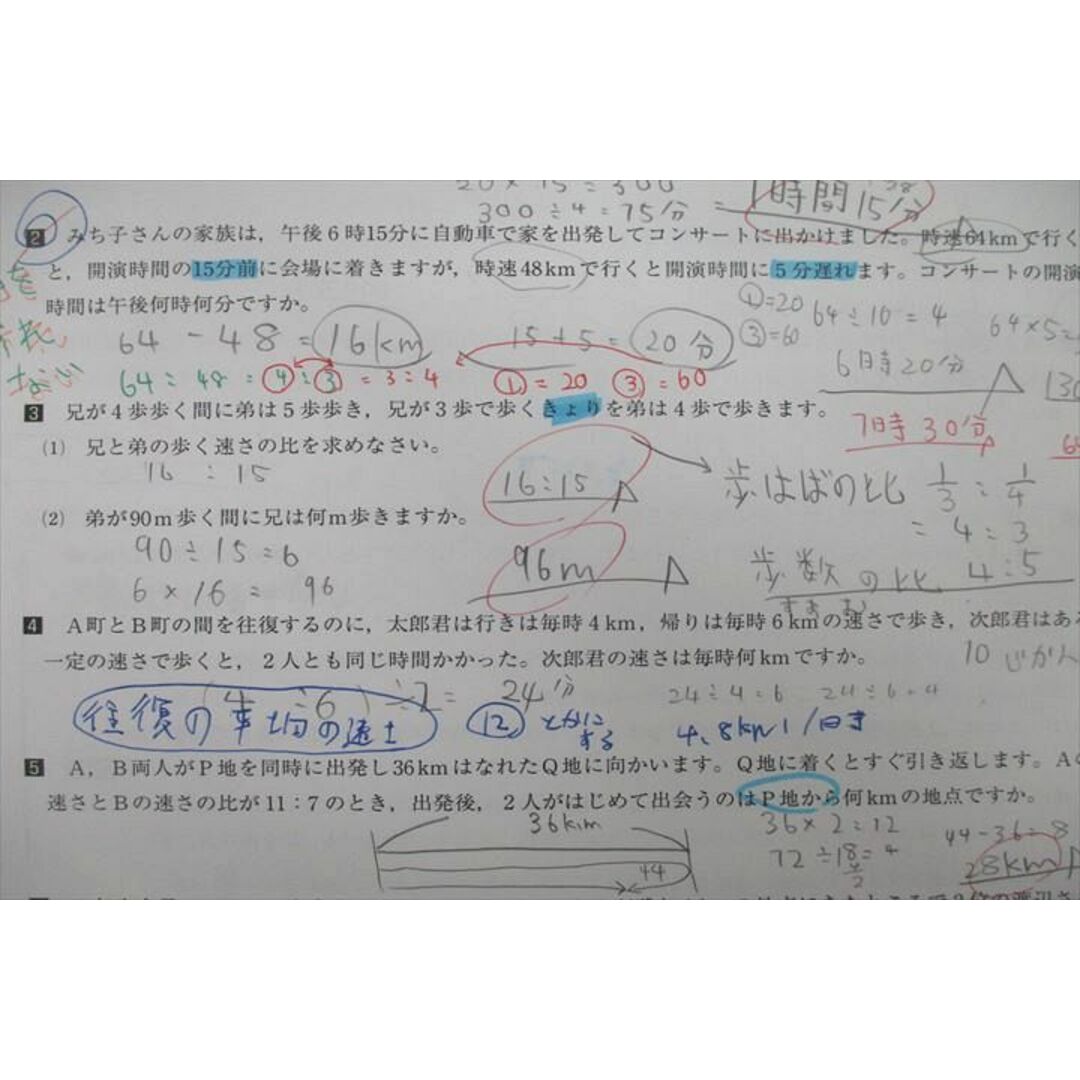 20×15=300
300÷4=75分 = 1時間15分
2 みち子さんの家族は，午後6時15分に自動車で家を出発してコンサートに出かけました。時速64kmで行く
と，開演時間の15分前に会場に着きますが，時速48kmで行くと開演時間に5分遅れます。コンサートの開演
時間は午後何時何分ですか。
①=20
③=60
64÷10=4
64×5=
64-48=16km
15+5=20分
6時20分
64:48=④:③=3:4
①=20 ③=60
7時30分
3 兄が4歩歩く間に弟は5歩歩き，兄が3歩で歩くきょりを弟は4歩で歩きます。
(1) 兄と弟の歩く速さの比を求めなさい。
16:15
16:15
歩はばの比 1/3:1/4
=4:3
(2) 弟が90m歩く間に兄は何m歩きますか。
90÷15=6
6×16=96
96m
歩数の比 4:5
4 A町とB町の間を往復するのに，太郎君は行きは毎時4km，帰りは毎時6kmの速さで歩き，次郎君はある
一定の速さで歩くと，2人とも同じ時間かかった。次郎君の速さは毎時何kmですか。
10じかん
(4÷6)÷2= 24分
24÷4=6 24÷6=4
往復の平均の速さ
⑫とかにする
4.8km/時
5 A，B両人がP地を同時に出発し36kmはなれたQ地に向かいます。Q地に着くとすぐ引き返します。Aの
速さとBの速さの比が11：7のとき，出発後，2人がはじめて出会うのはP地から何kmの地点ですか。
36km
44
36×2=12
72÷18=4
44-36=8
28km